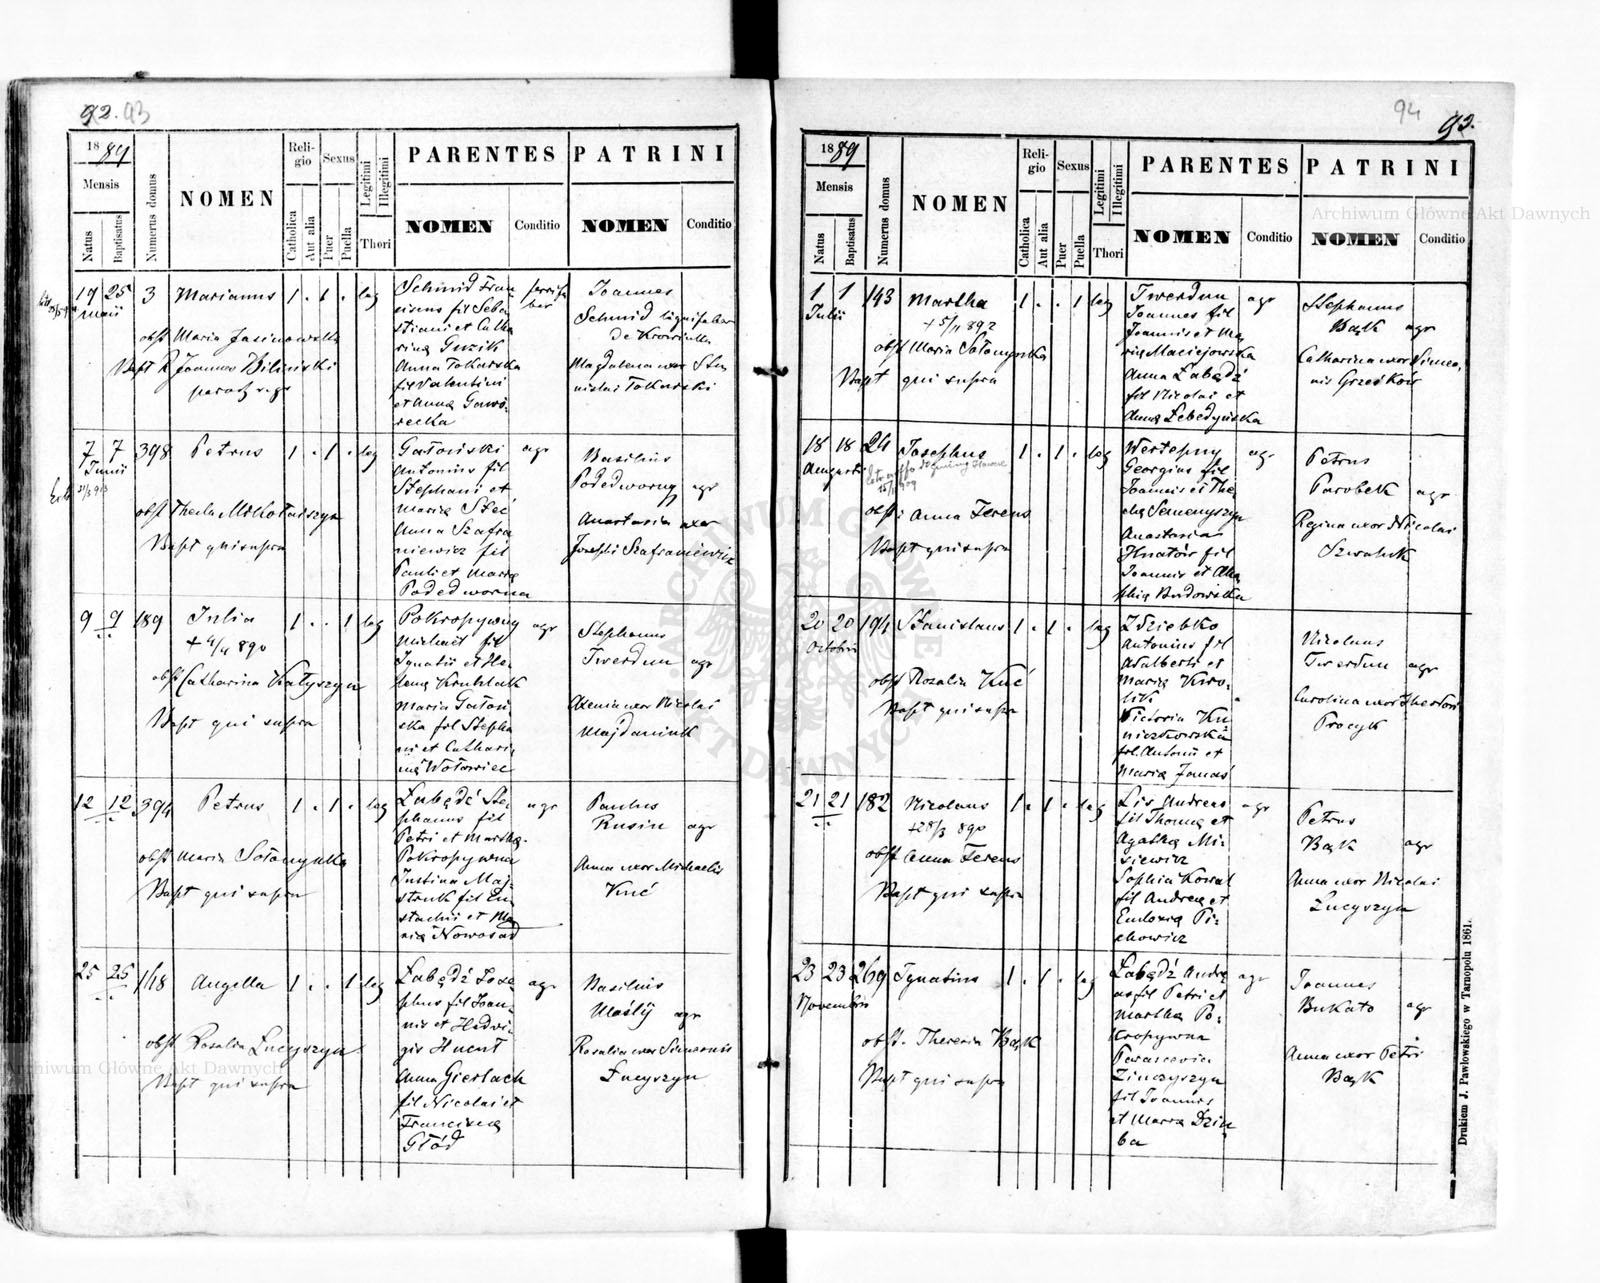 92. 93
1889
Mensis
Natus
Baptisatus
Numerus domus
NOMEN
Religio
Catholica
Aut alia
Sexus
Puer
Puella
Legitimi
Illegitimi
Thori
PARENTES
NOMEN
Conditio
PATRINI
NOMEN
Conditio
17 25 3 Marianus 1 . 1 . leg
Maii
obst Maria Jasinowska
Bapt R Joannes Bilinski
Schmid Fran
ciscus fil Seba
stiani et Catha
rina Guzik
Anna Tokarska
fil Valentini
et Anna Gawo
recka
Joannes
Schmid
Magdalena uxor Sta
nislai Tokarski
7 7 398 Petrus 1 . 1 . leg
Junii
obst Thecla Mikołaiszyn
Bapt qui supra
Gatoński
Antonius fil
Stephani et
Maria Steć
Anna Szafra
niewicz fil
Pauli et Maria
Podedworna
agr
Basilius
Podedworny agr
Anastasia uxor
Josephi Szafraniewicz
9 9 189 Julia 1 . . 1 leg
+ 4/4 890
obst Catharina Kałyszyn
Bapt qui supra
Pokropywny
Michael fil
Ignatii et He
lena Kruhlak
Maria Gatoń
ska fil Stepha
ni et Cathari
na Wołowiec
agr
Stephanus
Twerdun agr
Axenia uxor Nicolai
Majdaniuk
12 12 394 Petrus 1 . 1 . leg
obst Maria Sołomynka
Bapt qui supra
Łabędź Ste
phanus fil
Petri et Martha
Pokropywna
Justina Maj
struk fil Eu
stachii et Ma
ria Nowosad
agr
Paulus
Rusin agr
Anna uxor Michaelis
Kuć
25 25 148 Angella 1 . . 1 leg
obst Rosalia Lucyszyn
Bapt qui supra
Łabędź Jose
phus fil Joan
nis et Hedvi
gis Hucut
Anna Gierlach
fil Nicolai et
Francisca
Głód
agr
Basilius
Maśly agr
Rosalia uxor Simeonis
Lucyszyn
94 93.
1889
Mensis
Natus
Baptisatus
Numerus domus
NOMEN
Religio
Catholica
Aut alia
Sexus
Puer
Puella
Legitimi
Illegitimi
Thori
PARENTES
NOMEN
Conditio
PATRINI
NOMEN
Conditio
1 1 143 Martha 1 . . 1 leg
Julii
+ 5/11 892
obst Maria Sołomynka
Bapt qui supra
Twerdun
Joannes fil
Joannis et Ma
ria Maciejowska
Anna Łabędź
fil Nicolai et
Anna Lebedyńska
agr
Stephanus
Bąk agr
Catharina uxor Simeo
nis Grześków
18 18 24 Josephus 1 . 1 . leg
Augusti
obst: Anna Ferens
Bapt qui supra
Wertepny
Georgius fil
Joannis et The
cla Semenyszyn
Anastasia
Hnatów fil
Joannis et Aga
phia Budowska
agr
Petrus
Parobek agr
Regina uxor Nicolai
Szwaluk
20 20 194 Stanislaus 1 . 1 . leg
Octobris
obst Rosalia Kuć
Bapt qui supra
Zdziebko
Antonius fil
Adalberti et
Maria Kro
lik
Victoria Ku
niczkowska
fil. Antonii et
Maria Janas
Nicolaus
Twerdun agr
Carolina uxor Theodori
Procyk
21 21 182 Nicolaus 1 . 1 . leg
+ 28/3 890
obst Anna Ferens
Bapt qui supra
Lis Andreas
fil Thoma et
Agatha Mi
siewicz
Sophia Kowal
fil Andrea et
Eudoxia Pi
chowicz
agr
Petrus
Bąk agr
Anna uxor Nicolai
Lucyszyn
23 23 269 Ignatius 1 . 1 . leg
Novembris
obst. Theresia Bąk
Bapt qui supra
Łabędź Andre
as fil Petri et
Martha Po
kropywna
Parascevia
Zinczyszyn
fil Joannis
et Maria Dziu
ba
agr
Joannes
Bukato agr
Anna uxor Petri
Bąk
Drukiem J. Pawłowskiego w Tarnopolu 1861.
Archiwum Główne Akt Dawnych
Archiwum Główne Akt Dawnych
ARCHIWUM GŁÓWNE AKT DAWNYCH